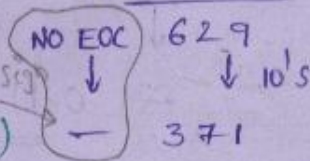 NO EOC 629
sign ↓ ↓ 10's
) — 371